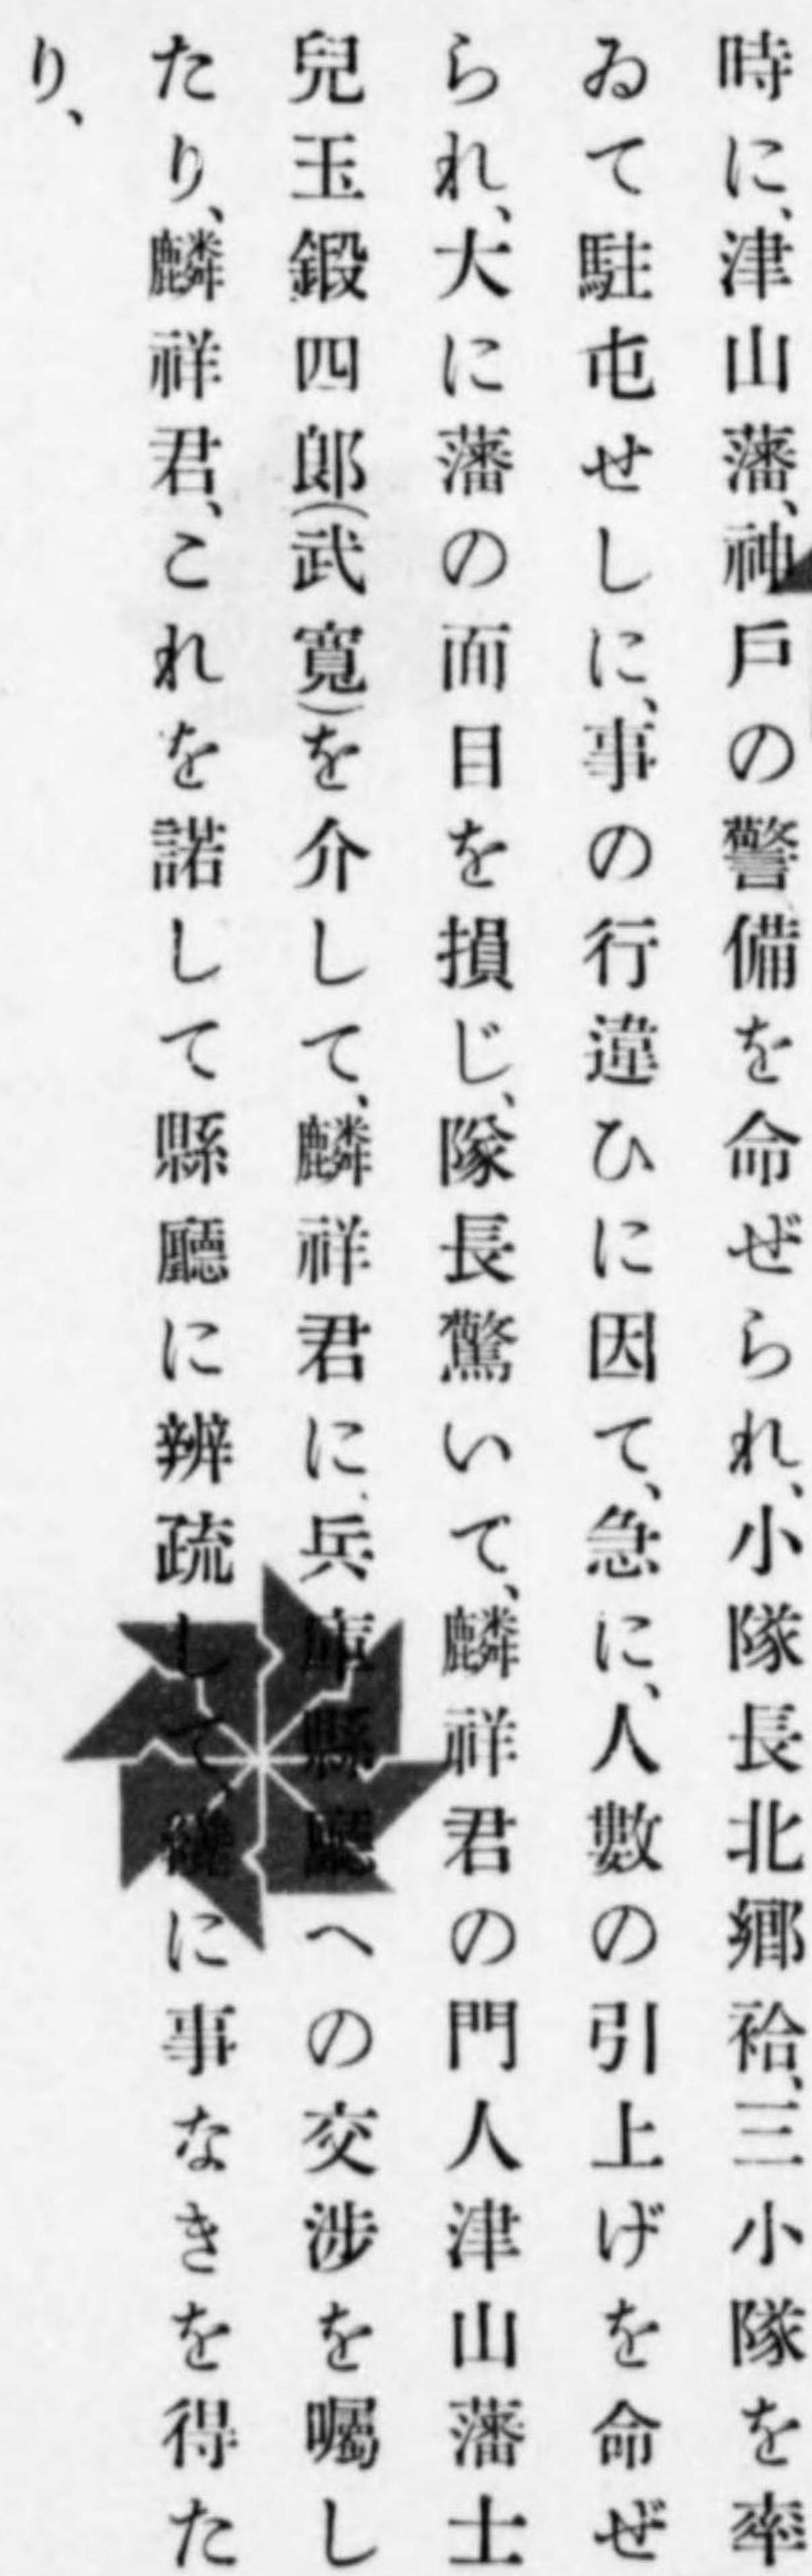 時に、津山藩、神戶の警備を命ぜられ、小隊長北鄕袷、三小隊を率
ゐて駐屯せしに、事の行違ひに因て、急に、人數の引上げを命ぜ
られ、大に藩の面目を損じ、隊長驚いて、麟祥君の門人津山藩士
兒玉鍛四郞(武寬)を介して、麟祥君に、兵庫縣廳への交涉を囑し
たり、麟祥君、これを諾して縣廳に辨疏して、纔に事なきを得た
り、